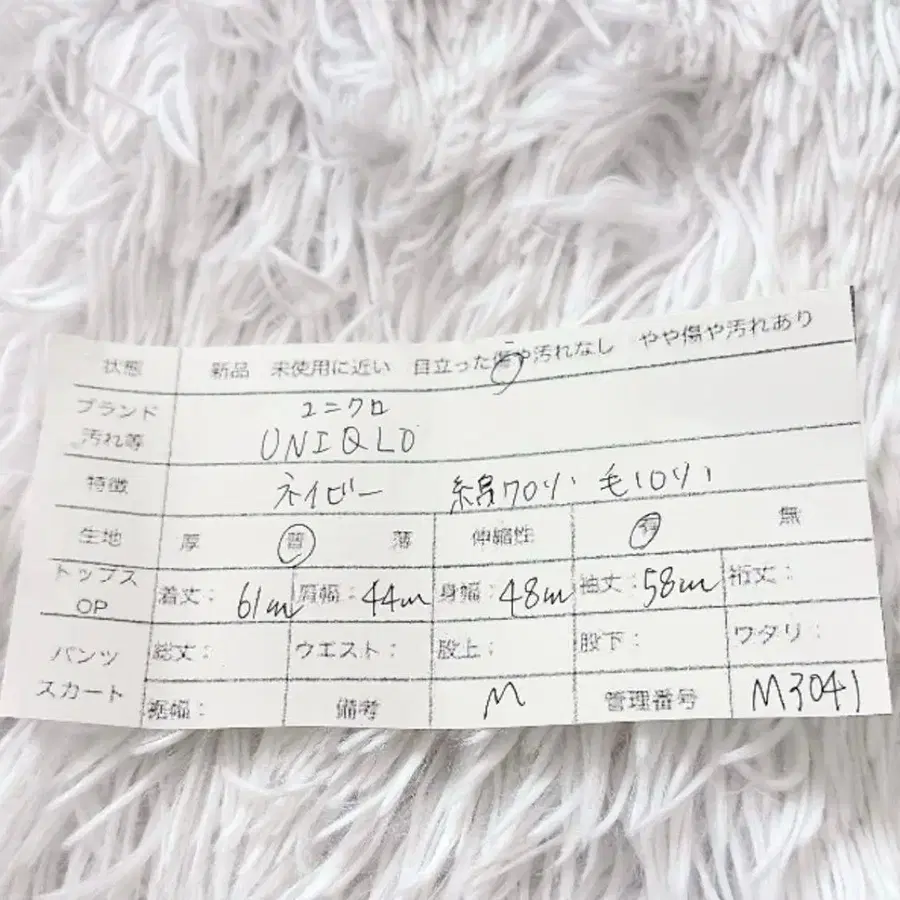 状態 新品 未使用に近い 目立った傷や汚れなし やや傷や汚れあり
ブランド ユニクロ
汚れ等 UNIQLO
特徴 ネイビー 綿70% 毛10%
生地 厚 普 薄 伸縮性 有 無
トップス OP 着丈: 61cm 肩幅: 44cm 身幅: 48cm 袖丈: 58cm 裄丈:
パンツ スカート 総丈: ウエスト: 股上: 股下: ワタリ:
裾幅: 備考 M 管理番号 M3041